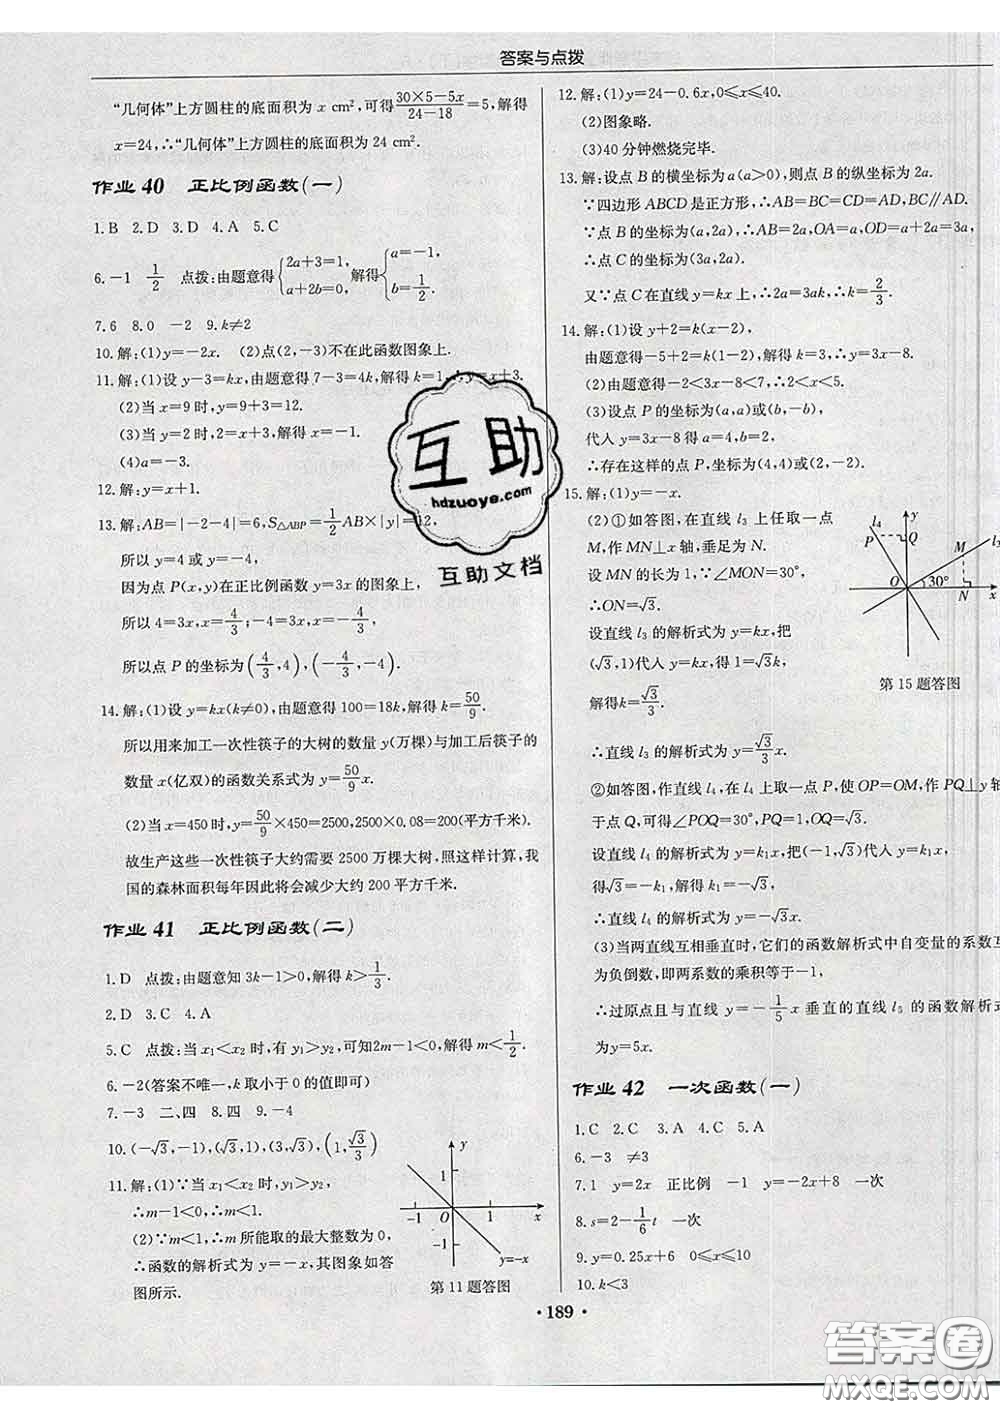 答案与点拨
“几何体”上方圆柱的底面积为 x cm²,可得(30×5−5x)/(24−18)=5,解得
x=24,∴“几何体”上方圆柱的底面积为 24 cm².
作业 40 正比例函数(一)
1.B 2.D 3.D 4.A 5.C
6.−1 1/2 点拨:由题意得{2a+3=1, a+2b=0,解得{a=−1, b=1/2.
7.6 8.0 −2 9.k≠2
10.解:(1)y=−2x. (2)点(2,−3)不在此函数图象上.
11.解:(1)设 y−3=kx,由题意得 7−3=4k,解得 k=1,∴y=x+3.
(2)当 x=9 时,y=9+3=12.
(3)当 y=2 时,2=x+3,解得 x=−1.
(4)a=−3.
12.解:y=x+1.
13.解:AB=|−2−4|=6,S△ABP=1/2 AB×|y|=12,
所以 y=4 或 y=−4.
因为点 P(x,y)在正比例函数 y=3x 的图象上,
所以 4=3x,x=4/3;−4=3x,x=−4/3.
所以点 P 的坐标为(4/3,4),(−4/3,−4).
14.解:(1)设 y=kx(k≠0),由题意得 100=18k,解得 k=50/9.
所以用来加工一次性筷子的大树的数量 y(万棵)与加工后筷子的
数量 x(亿双)的函数关系式为 y=50/9 x.
(2)当 x=450 时,y=50/9×450=2500,2500×0.08=200(平方千米).
故生产这些一次性筷子大约需要 2500 万棵大树,照这样计算,我
国的森林面积每年因此将会减少大约 200 平方千米.
作业 41 正比例函数(二)
1.D 点拨:由题意知 3k−1>0,解得 k>1/3.
2.D 3.C 4.A
5.C 点拨:当 x₁<x₂ 时,有 y₁>y₂,可知2m−1<0,解得 m<1/2.
6.−2(答案不唯一,k 取小于 0 的值即可)
7.−3 二、四 8.四 9.−4
10.(−√3,−1),(√3,1),(3,√3),(1,√3/3)
11.解:(1)∵当 x₁<x₂ 时,y₁>y₂,
∴m−1<0,∴m<1.
(2)∵m<1,∴m 所能取的最大整数为 0,
∴函数的解析式为 y=−x,其图象如答
图所示.
y
1
−1 O 1 x
−1
y=−x
第 11 题答图
12.解:(1)y=24−0.6x,0≤x≤40.
(2)图象略.
(3)40 分钟燃烧完毕.
13.解:设点 B 的横坐标为 a(a>0),则点 B 的纵坐标为 2a.
∵四边形 ABCD 是正方形,∴AB=BC=CD=AD,BC∥AD.
∵点 B 的坐标为(a,2a),∴AB=2a,OA=a,OD=a+2a=3a,
∴点 C 的坐标为(3a,2a).
又∵点 C 在直线 y=kx 上,∴2a=3ak,∴k=2/3.
14.解:(1)设 y+2=k(x−2),
由题意得−5+2=k(1−2),解得 k=3,∴y=3x−8.
(2)由题意得−2<3x−8<7,∴2<x<5.
(3)设点 P 的坐标为(a,a)或(b,−b),
代入 y=3x−8得 a=4,b=2.
∴存在这样的点 P,坐标为(4,4)或(2,−2).
15.解:(1)y=−x.
(2)①如答图,在直线 l₃ 上任取一点
M,作 MN⊥x 轴,垂足为 N.
设 MN 的长为 1,∵∠MON=30°,
∴ON=√3.
设直线 l₃ 的解析式为 y=kx,把
(√3,1)代入 y=kx,得 1=√3k,
解得 k=√3/3.
l₄ y
P Q M l₃
O 30° N x
第 15 题答图
∴直线 l₃ 的解析式为 y=√3/3 x.
②如答图,作直线 l₄,在 l₄ 上取一点 P,使 OP=OM,作 PQ⊥y 轴
于点 Q,可得∠POQ=30°,PQ=1,OQ=√3.
设直线 l₄ 的解析式为 y=k₁x,把(−1,√3)代入 y=k₁x,
得√3=−k₁,解得 k₁=−√3,
∴直线 l₄ 的函数解析式为 y=−√3x.
(3)当两直线互相垂直时,它们的函数解析式中自变量的系数互
为负倒数,即两系数的乘积等于−1,
∴过原点且与直线 y=−1/5 x 垂直的直线 l₅ 的函数解析式
为 y=5x.
作业 42 一次函数(一)
1.C 2.C 3.A 4.C 5.A
6.−3 ≠3
7.1 y=2x 正比例 −1 y=−2x+8 一次
8.s=2−1/6 t 一次
9.y=0.25x+6 0≤x≤10
10.k<3
• 189 •
互助
hdzuoye.com
互助文档
答案圈
MXQE.COM